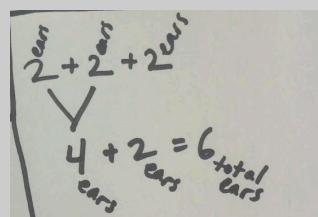 2 ears + 2 ears + 2 ears
4 ears + 2 ears = 6 total ears